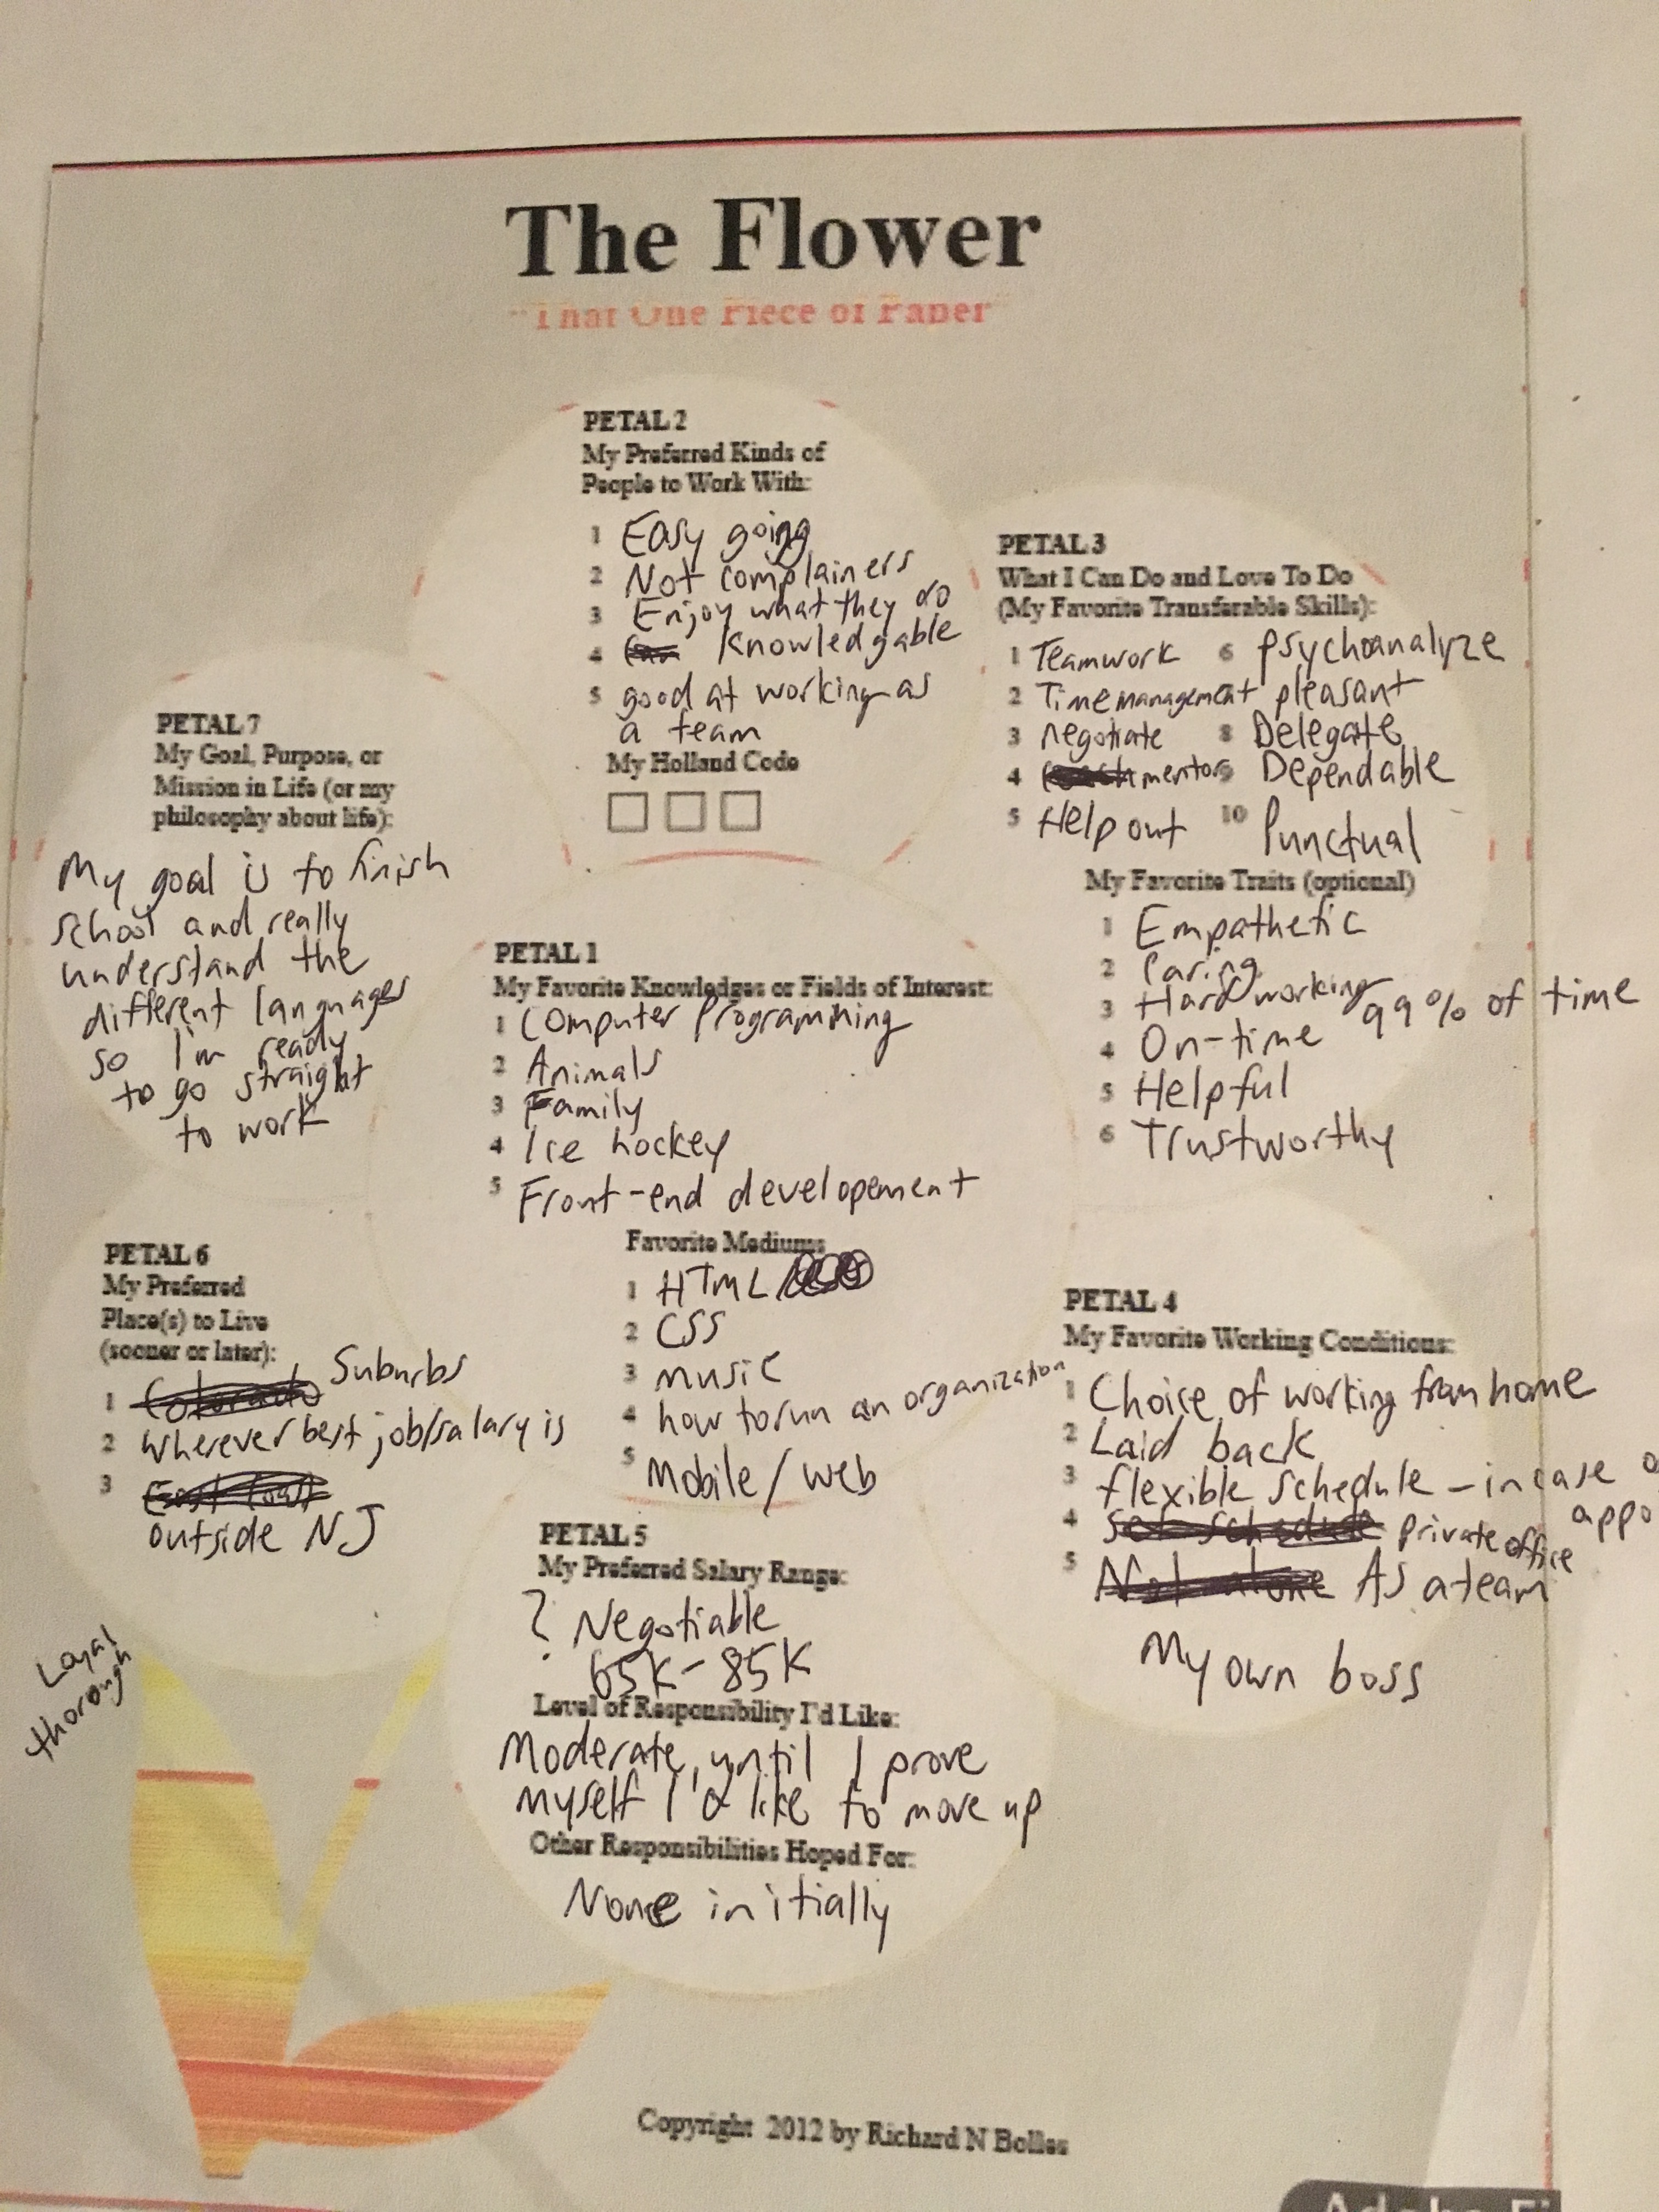 The Flower
"That One Piece of Paper"
PETAL 2
My Preferred Kinds of
People to Work With:
1 Easy going
2 Not complainers
3 Enjoy what they do
4 Knowledgable
5 good at working as
a team
My Holland Code
PETAL 3
What I Can Do and Love To Do
(My Favorite Transferable Skills):
1 Teamwork 6 psychoanalyze
2 Time management pleasant
3 negotiate 8 Delegate
4 mentor 9 Dependable
5 Help out 10 Punctual
My Favorite Traits (optional)
1 Empathetic
2 Caring
3 Hard working 99% of time
4 On-time
5 Helpful
6 Trustworthy
PETAL 7
My Goal, Purpose, or
Mission in Life (or my
philosophy about life):
My goal is to finish
school and really
understand the
different languages
so I'm ready
to go straight
to work
PETAL 1
My Favorite Knowledges or Fields of Interest:
1 Computer Programming
2 Animals
3 Family
4 Ice hockey
5 Front-end developement
Favorite Mediums
1 HTML
2 CSS
3 music
4 how to run an organization
5 Mobile/web
PETAL 6
My Preferred
Place(s) to Live
(sooner or later):
1 Colorado Suburbs
2 Wherever best job/salary is
3 East Coast
outside NJ
PETAL 4
My Favorite Working Conditions:
1 Choice of working from home
2 Laid back
3 flexible schedule - in case
appo
4 set schedule private office
5 Not alone As a team
My own boss
PETAL 5
My Preferred Salary Range:
? Negotiable
65K-85K
Level of Responsibility I'd Like:
Moderate, until I prove
myself I'd like to move up
Other Responsibilities Hoped For:
None initially
Loyal
thorough
Copyright 2012 by Richard N Bolles